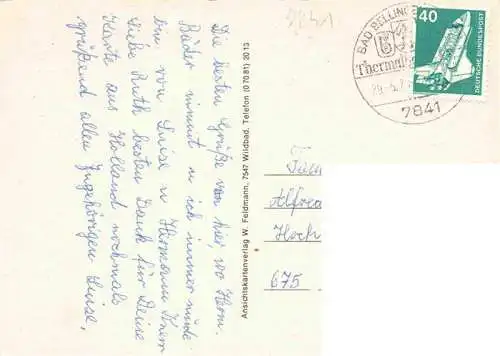 Die besten Grüße von hier, wo Herm.
Bäder nimmt u ich immer müde
bin von Luise u Hermann
Liebe Ruth besten Dank für Deine
Karte aus Holland nochmals
grüßend allen Angehörigen Luise,
Ansichtskartenverlag W. Feldmann, 7547 Wildbad, Telefon (07081) 2013
7841
BAD BELLING
Thermal
29.-5.7
7841
40
DEUTSCHE BUNDESPOST
Alfre
Hoch
675